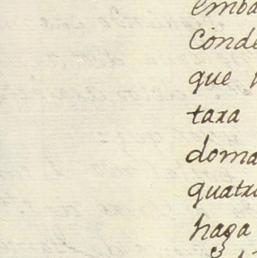 emba
Conde
que
tara
doma
quatr
haga